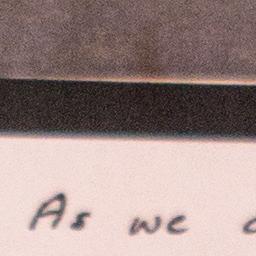 As we